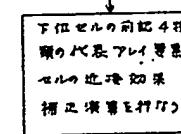 下位セルの前記4種
類の代表アレイ要素
セルの近接効果
補正演算を行なう